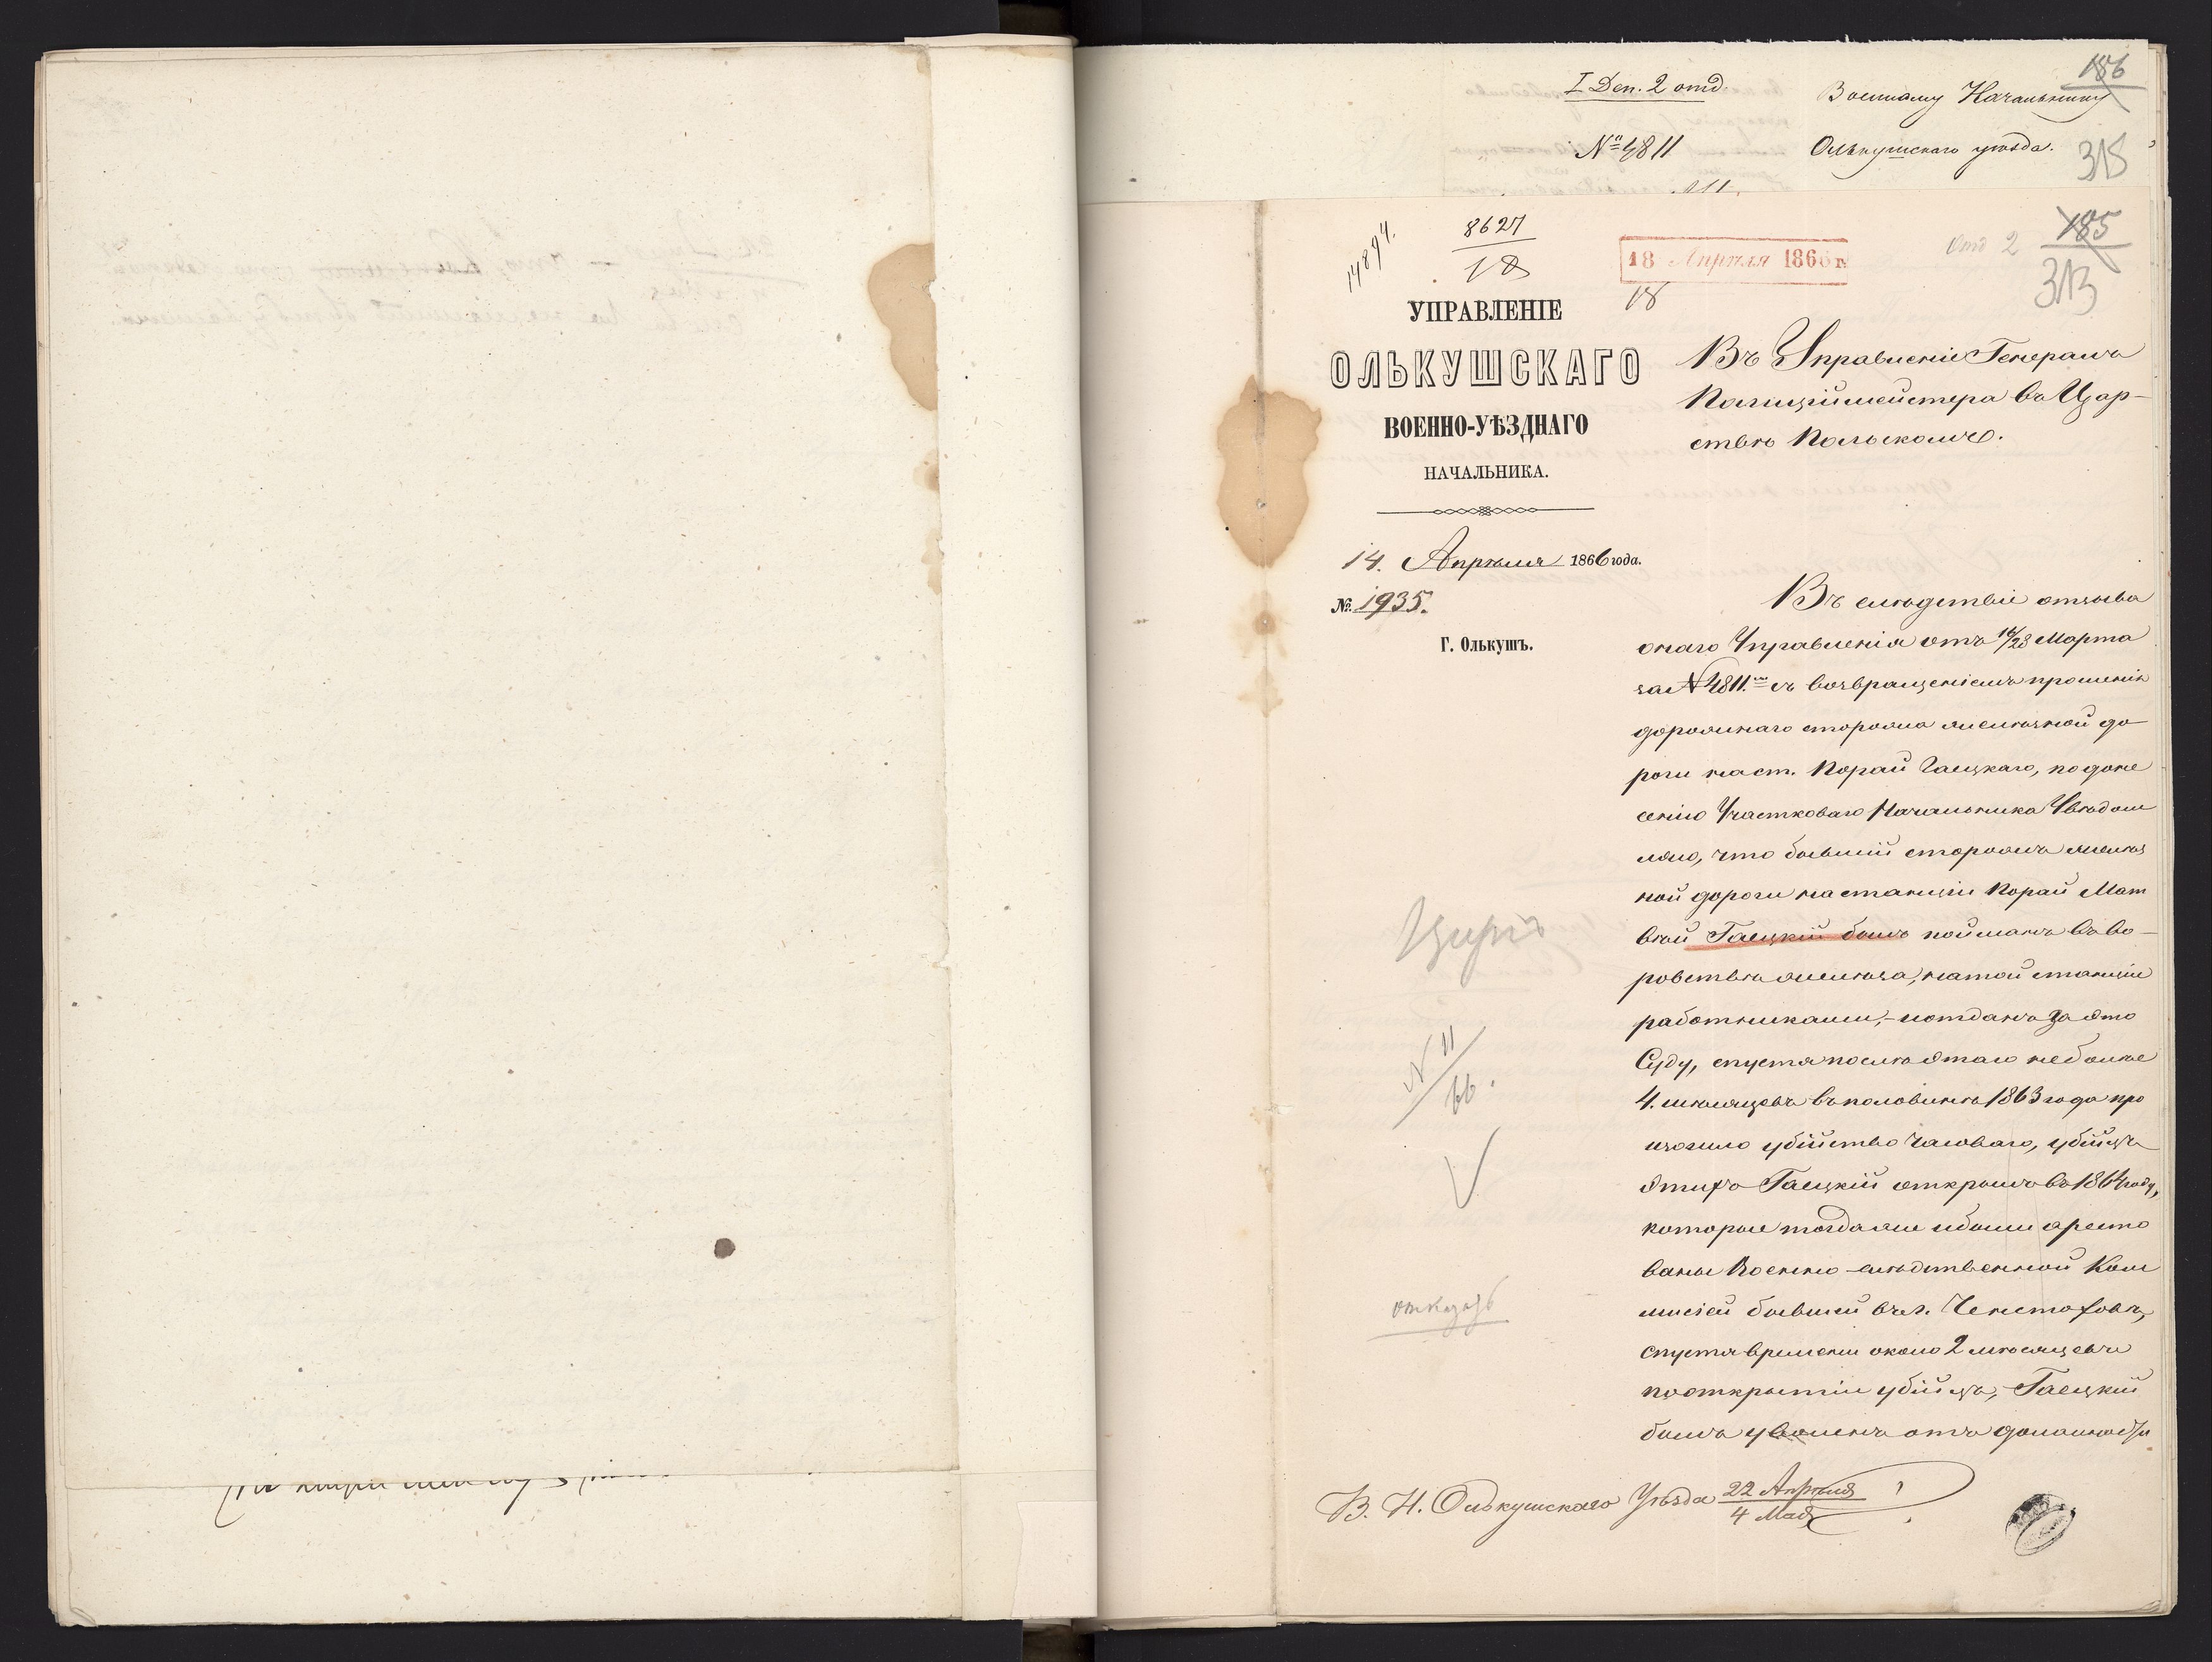 I Деп. 2 отд.
Военному Начальнику
186
№ 4811
Олькушскаго уѣзда.
315
14894.
8627
18
18 Апрѣля 1866 г.
18
Отд 2
185
313
УПРАВЛЕНІЕ
ОЛЬКУШСКАГО
ВОЕННО-УѢЗДНАГО
НАЧАЛЬНИКА.
14. Апрѣля 1866 года.
№ 1935.
Г. Олькушъ.
Въ Управленіе Генералъ
Полиціймейстера въ Цар-
ствѣ Польскомъ.
Въ слѣдствіе отзыва
онаго Управленія отъ 16/28 Марта
за № 4811. съ возвращеніемъ прошенія
дорожнаго сторожа желѣзной до-
роги на ст. Порай Гаецкаго, по доне
сенію Участковаго Начальника Увѣдом
ляю, что бывшій сторожъ желѣз
ной дороги на станціи Порай Мат
вѣй Гаецкій былъ пойманъ въ во-
ровствѣ желѣза, на той станціи
работниками,- и отданъ за это
Суду, спустя послѣ этаго не болѣе
4. мѣсяцевъ въ половинѣ 1863 года про
изошло убійство часоваго, убійцъ
этихъ Гаецкій открылъ въ 1864 году,
которые тогда же и были аресто
ваны Военно-слѣдственной Ком
мисіей бывшей въ г. Ченстоховѣ,
спустя времени около 2 мѣсяцевъ
по открытіи убійцъ, Гаецкій
былъ уволенъ отъ должности
№ 11
66.
отказать
В. Н. Олькушскаго Уѣзда 22 Апрѣля
4 Мая